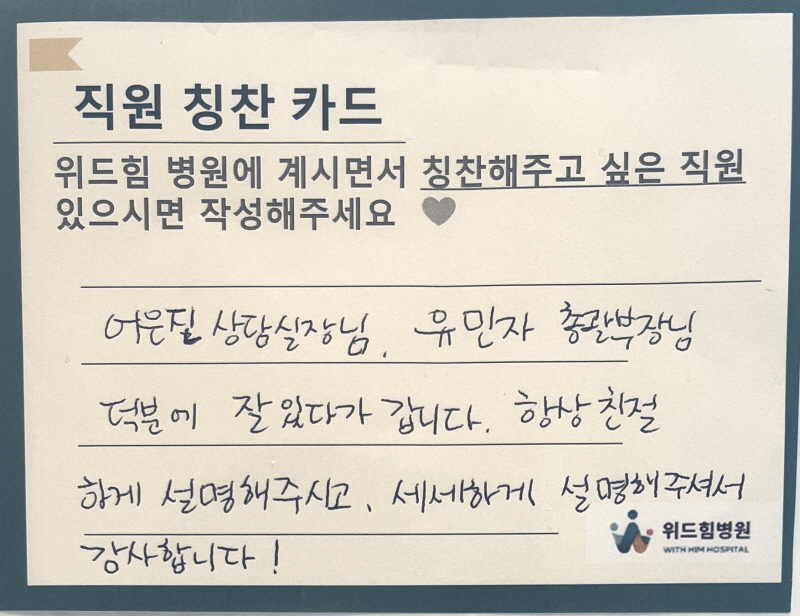 직원 칭찬 카드
위드힘 병원에 계시면서 칭찬해주고 싶은 직원
있으시면 작성해주세요
어은필 상담실장님, 유민자 총괄부장님
덕분에 잘 있다가 갑니다. 항상 친절
하게 설명해주시고, 세세하게 설명해주셔서
감사합니다!
위드힘병원
WITH HIM HOSPITAL